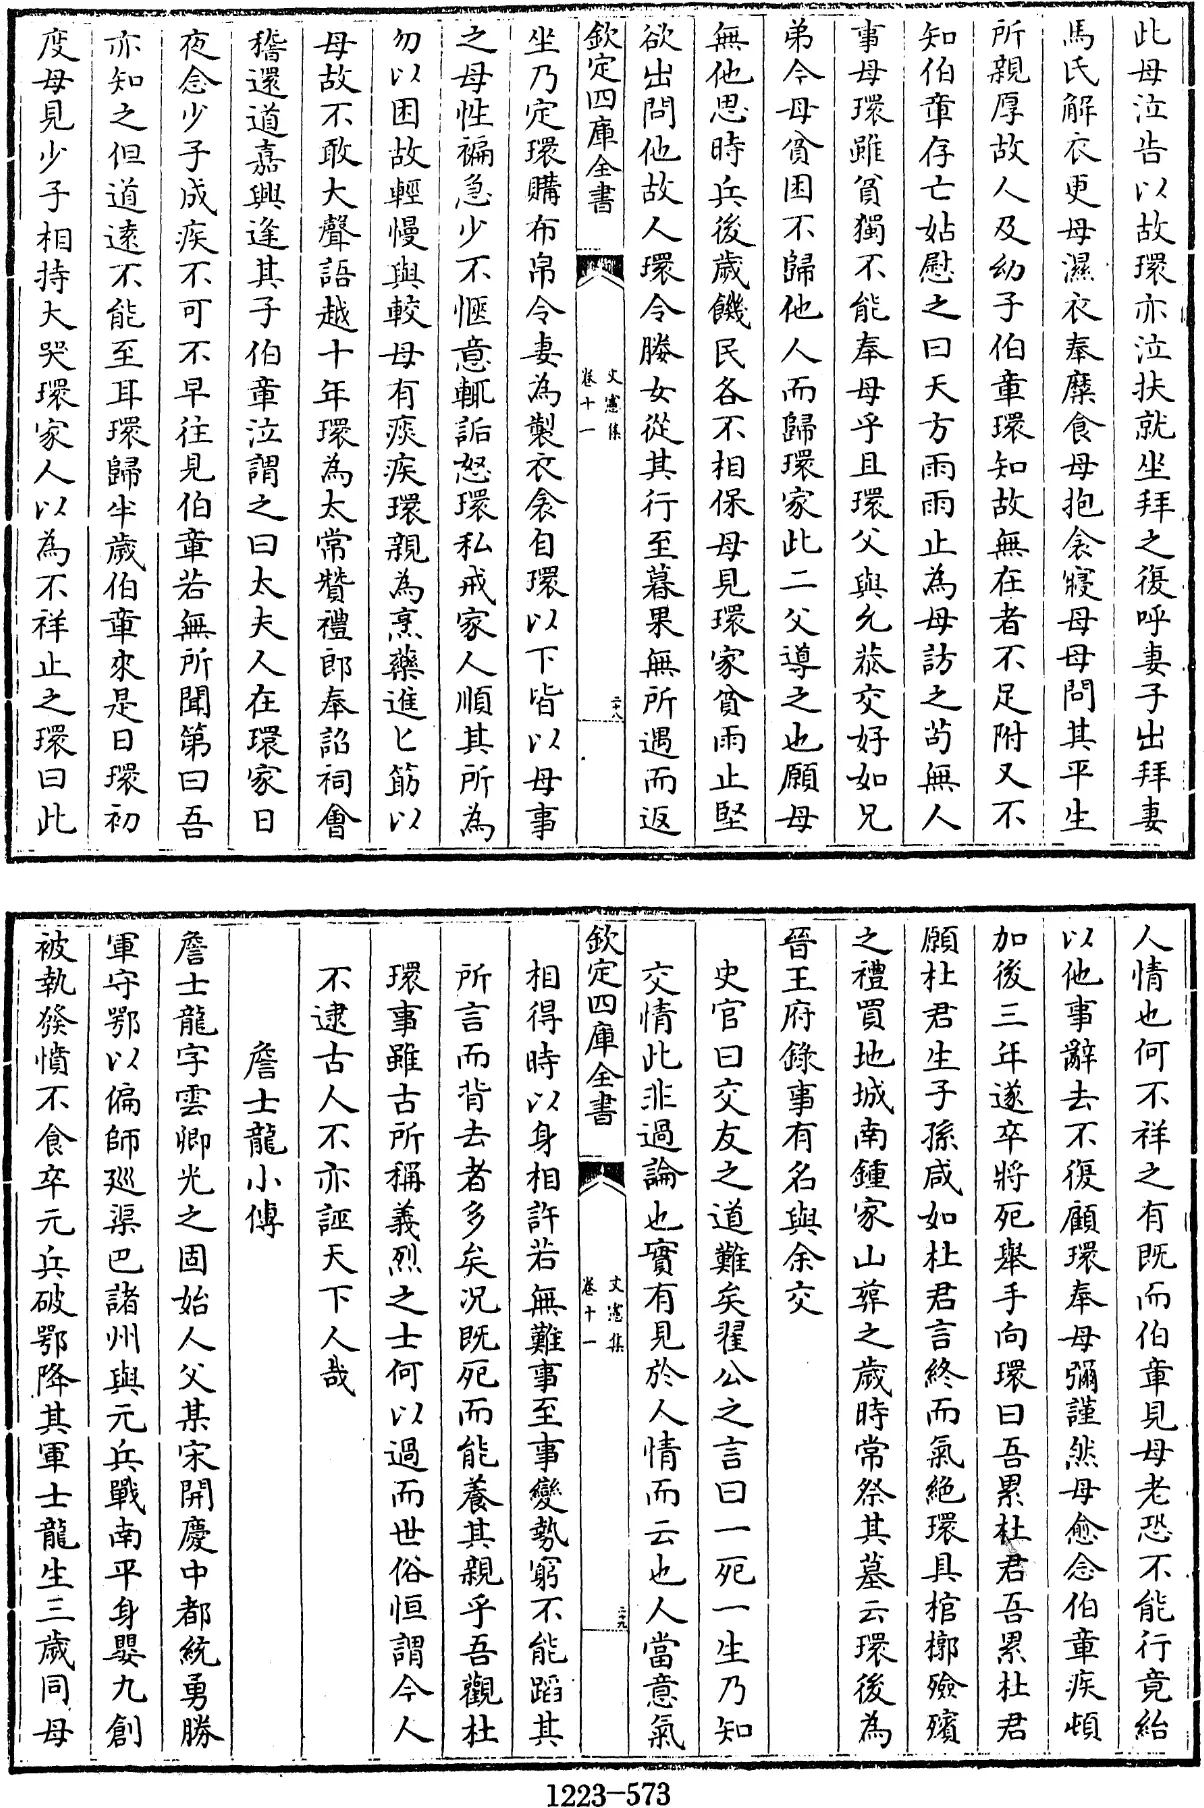 此母泣告以故環亦泣扶就坐拜之復呼妻子出拜妻
馬氏解衣更母濕衣奉糜食母抱衾寢母母問其平生
所親厚故人及幼子伯章環知故無在者不足附又不
知伯章存亡姑慰之曰天方雨雨止為母訪之茍無人
事母環雖貧獨不能奉母乎且環父與允恭交好如兄
弟今母貧困不歸他人而歸環家此二父導之也願母
無他思時兵後歲饑民各不相保母見環家貧雨止堅
欲出問他故人環令媵女從其行至暮果無所遇而返
欽定四庫全書
文憲集
卷十一
二十八
坐乃定環購布帛令妻為製衣衾自環以下皆以母事
之母性褊急少不愜意輒詬怒環私戒家人順其所為
勿以困故輕慢與較母有痰疾環親為烹藥進匕筯以
母故不敢大聲語越十年環為太常贊禮郎奉詔祠會
稽還道嘉興逢其子伯章泣謂之曰太夫人在環家日
夜念少子成疾不可不早往見伯章若無所聞第曰吾
亦知之但道遠不能至耳環歸半歲伯章來是日環初
度母見少子相持大哭環家人以為不祥止之環曰此
人情也何不祥之有既而伯章見母老恐不能行竟紿
以他事辭去不復顧環奉母彌謹然母愈念伯章疾頓
加後三年遂卒將死舉手向環曰吾累杜君吾累杜君
願杜君生子孫咸如杜君言終而氣絶環具棺槨殮殯
之禮買地城南鍾家山葬之歲時常祭其墓云環後為
晉王府錄事有名與余交
史官曰交友之道難矣翟公之言曰一死一生乃知
交情此非過論也實有見於人情而云也人當意氣
欽定四庫全書
文憲集
卷十一
二十九
相得時以身相許若無難事至事變勢窮不能蹈其
所言而背去者多矣况既死而能養其親乎吾觀杜
環事雖古所稱義烈之士何以過而世俗恒謂今人
不逮古人不亦誣天下人哉
詹士龍小傳
詹士龍字雲卿光之固始人父某宋開慶中都統勇勝
軍守鄂以偏師廵渠巴諸州與元兵戰南平身嬰九創
被執發憤不食卒元兵破鄂降其軍士龍生三歲同母
1223-573